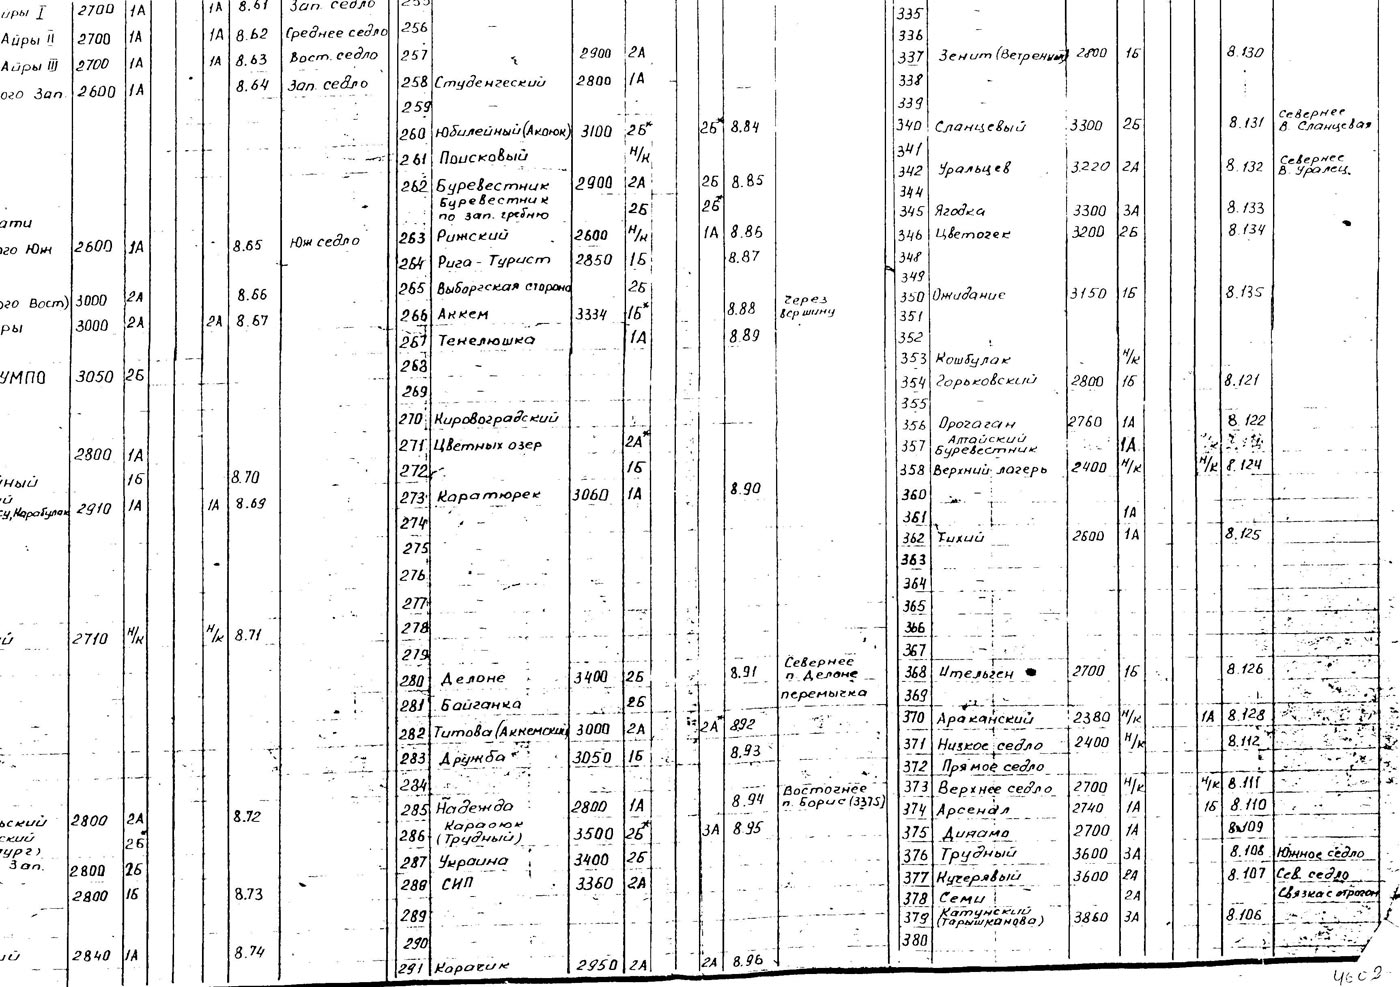 йры I 2700 1А 1А 8.61 Зап. седло
Айры II 2700 1А 1А 8.62 Среднее седло
Айры III 2700 1А 1А 8.63 Вост. седло
ого Зап. 2600 1А 8.64 Зап. седло
ати
го Юж 2600 1А 8.65 Юж седло
ого Вост) 3000 2А 8.66
ры 3000 2А 2А 8.67
УМПО 3050 2Б
2800 1А
ный 1Б 8.70
ий
су, Карабулак 2910 1А 1А 8.69
ий 2710 н/к н/к 8.71
ьский 2800 2А 8.72
ский 2Б
бург)
Зап. 2800 2Б
2800 1Б 8.73
ий 2840 1А 8.74
255
256 -
257 2900 2А
258 Студенческий 2800 1А
259 -
260 Юбилейный (Акоюк) 3100 2Б* 2Б* 8.84
261 Поисковый н/к
262 Буревестник 2900 2А 2Б 8.85
Буревестник
по зап. гребню 2Б 2Б*
263 Рижский 2600 н/к 1А 8.86
264 Рига - Турист 2850 1Б 8.87
265 Выборгская сторона 2Б
266 Аккем 3334 1Б* 8.88 через
вершину
267 Текелюшка 1А 8.89
268
269
270 Кировоградский
271 Цветных озер 2А*
272 1Б
273 Каратюрек 3060 1А 8.90
274
275
276
277
278
279
280 Делоне 3400 2Б 8.91 Севернее
п. Делоне
281 Байганка 2Б перемычка
282 Титова (Аккемский) 3000 2А 2А* 8.92
283 Дружба 3050 1Б 8.93
284
285 Надежда 2800 1А 8.94 Восточнее
п. Борис (3375)
286 Караоюк
(Трудный) 3500 2Б* 3А 8.95
287 Украина 3400 2Б
288 СИП 3360 2А
289
290
291 Карагик 2950 2А 2А 8.96
335 -
336 -
337 Зенит (Ветреный) 2800 1Б 8.130
338 -
339 -
340 Сланцевый 3300 2Б 8.131 Севернее
В. Сланцевая
341
342 Уральцев 3220 2А 8.132 Севернее
В. Уралец.
344
345 Ягодка 3300 3А 8.133
346 Цветочек 3200 2Б 8.134
348
349
350 Ожидание 3150 1Б 8.135
351
352
353 Кошбулак н/к
354 Горьковский 2800 1Б 8.121
355
356 Орочаган 2760 1А 8.122
357 Алтайский
Буревестник 1А
358 Верхний лагерь 2400 н/к н/к 8.124
360
361 1А
362 Тихий 2600 1А 8.125
363
364
365
366
367
368 Ительген 2700 1Б 8.126
369
370 Араканский 2380 н/к 1А 8.128
371 Низкое седло 2400 н/к 8.112
372 Прямое седло
373 Верхнее седло 2700 н/к н/к 8.111
374 Арсенал 2740 1А 1Б 8.110
375 Динамо 2700 1А 8.109
376 Трудный 3600 3А 8.108 Южное седло
377 Кучерявый 3600 2А 8.107 Сев. седло
378 Семи 2А Связка с отрогом
379 Катунский
(Тарышканова) 3860 3А 8.106
380